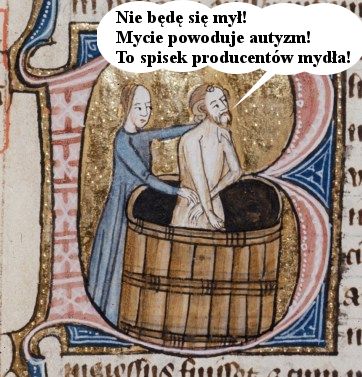 Nie będę się mył!
Mycie powoduje autyzm!
To spisek producentów mydła!